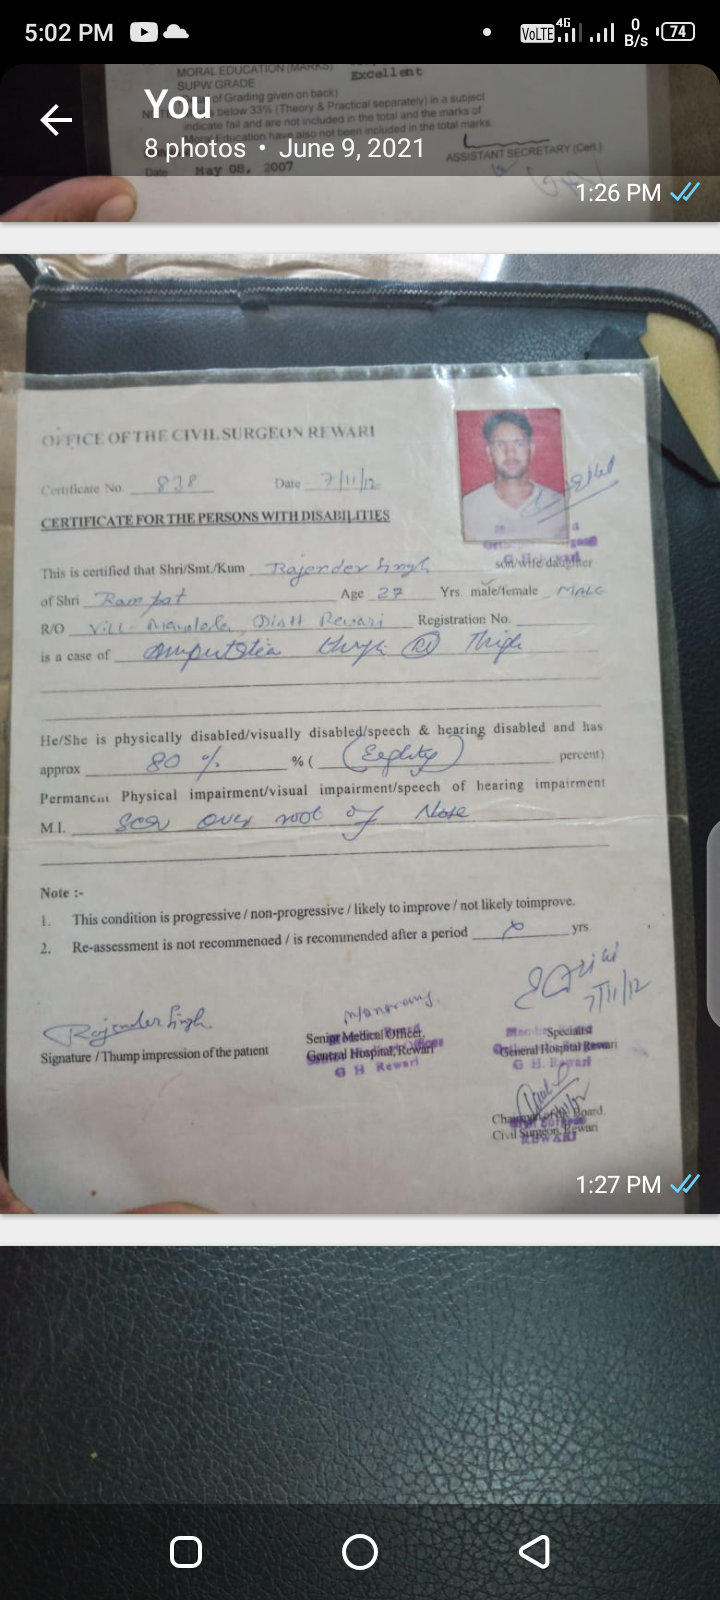 5:02 PM
VoLTE 4G 0 B/s 74
MORAL EDUCATION (MARKS)
SUPW GRADE Excellent
of Grading given on back)
You
below 33% (Theory & Practical separately) in a subject
indicate fail and are not included in the total and the marks of
Education have also not been included in the total marks.
8 photos • June 9, 2021
ASSISTANT SECRETARY (Cert.)
Date May 08, 2007
1:26 PM
OFFICE OF THE CIVIL SURGEON REWARI
Certificate No. 838 Date 7/11/12
CERTIFICATE FOR THE PERSONS WITH DISABILITIES
This is certified that Shri/Smt./Kum Rajender Singh son/wife/daughter
of Shri Rampat Age 27 Yrs. male/female MALE
R/O Vill- Distt Rewari Registration No.
is a case of amputation (R) Thigh
He/She is physically disabled/visually disabled/speech & hearing disabled and has
approx 80 % % ( (Eighty) percent)
Permanent Physical impairment/visual impairment/speech of hearing impairment
M.I. Scar over root of Nose
Note :-
1. This condition is progressive / non-progressive / likely to improve / not likely toimprove.
2. Re-assessment is not recommended / is recommended after a period x yrs.
7/11/12
Rajender Singh
Signature / Thump impression of the patient
Senior Medical Officer,
General Hospital, Rewari
G H Rewari
Specialist
General Hospital Rewari
G H. Rewari
Chairman of the Board.
Civil Surgeon, Rewari
REWARI
1:27 PM